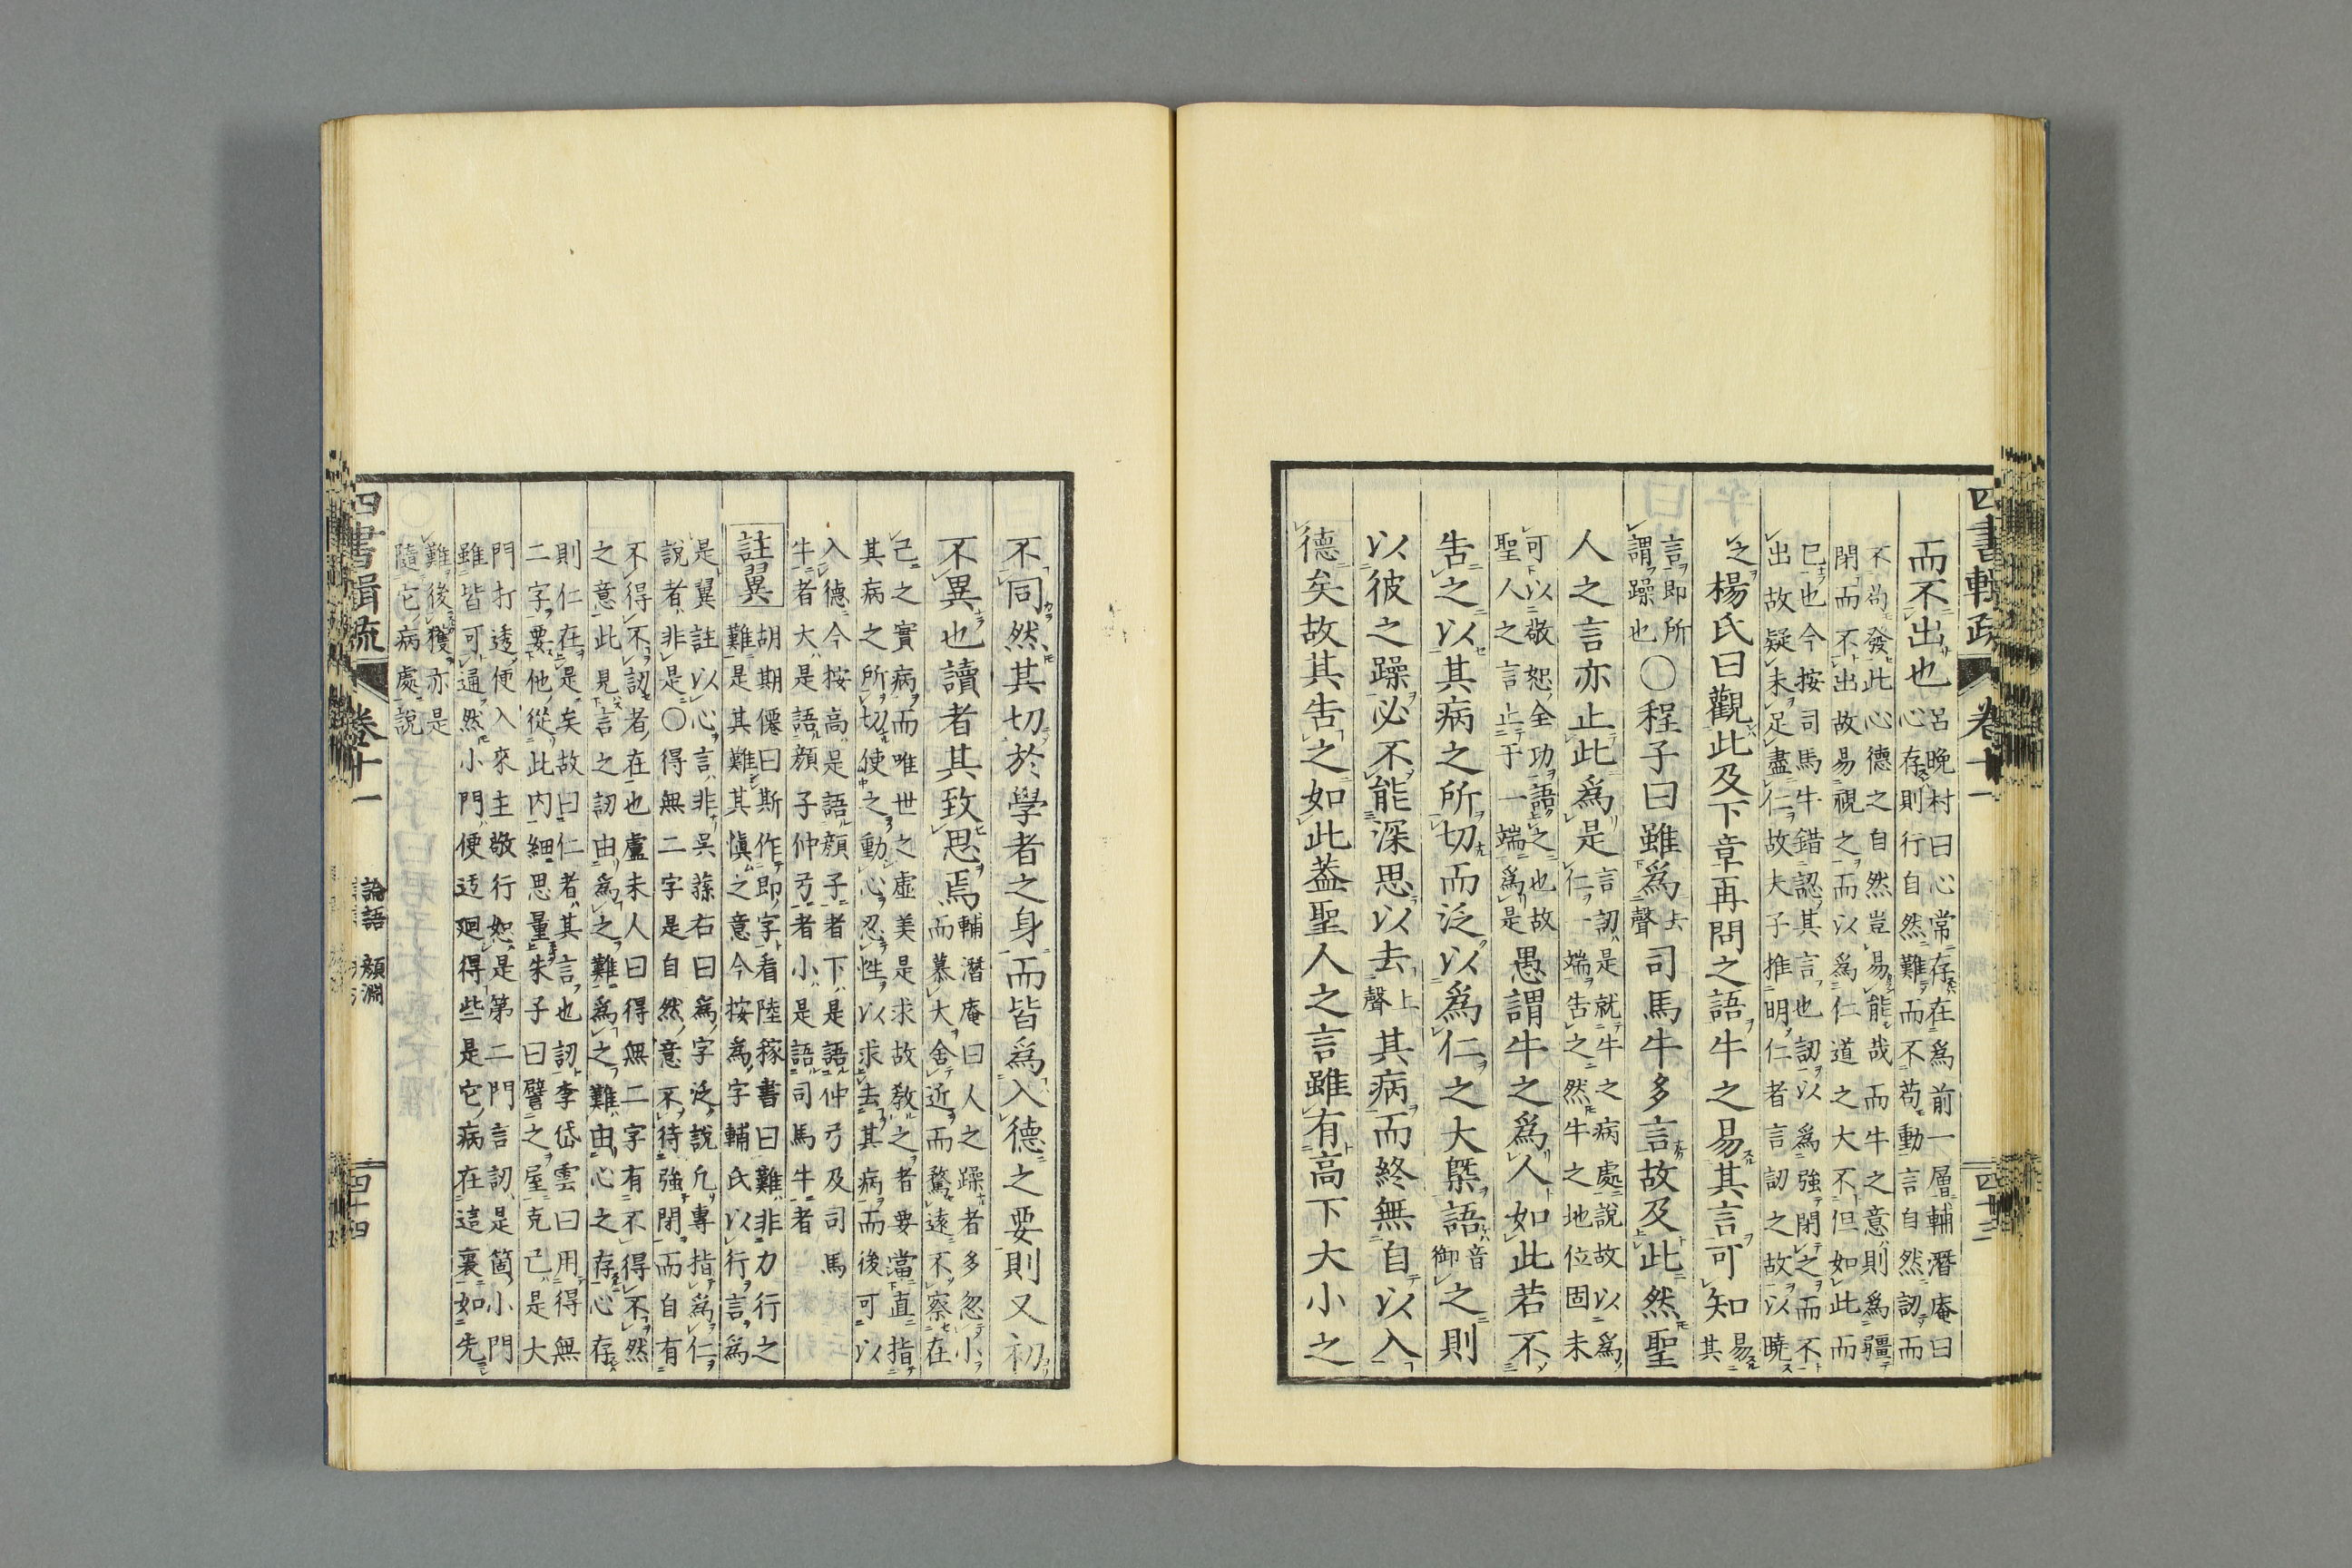 而不出也呂晚村曰心常存在爲前一層輔潛庵曰
心存則行自然難而不苟動言自然訒而
不苟發此心德之自然豈易能哉而牛之意則爲彊
閉而不出故易視之而以爲仁道之大不但如此而
已也今按司馬牛錯認其言也訒以爲強閉之而不
出故疑未足盡仁故夫子推明仁者言訒之故以曉
之楊氏曰觀此及下章再問之語牛之易其言可知易其
言即所
謂躁也〇程子曰雖爲去聲司馬牛多言故及此然聖
人之言亦止此爲是言訒是就牛之病處說故以爲
仁一端告之然牛之地位固未
可以敬恕全功語之也故
聖人之言止于一端爲是愚謂牛之爲人如此若不
告之以其病之所切而泛以爲仁之大槩語音御之則
以彼之躁必不能深思以去上聲其病而終無自以入
德矣故其告之如此蓋聖人之言雖有高下大小之
四書輯疏 卷十一 四十三
不同然其切於學者之身而皆爲入德之要則又初
不異也讀者其致思焉輔潛庵曰人之躁者多忽小
而慕大舍近而騖遠不察在
己之實病而唯世之虛美是求故教之者要當直指
其病之所切使之動心忍性以求去其病而後可以
入德今按高是語顏子者下是語仲弓及司馬
牛者大是語顏子仲弓者小是語司馬牛者
註翼 胡期僊曰斯作即字看陸稼書曰難非力行之
難是其難其愼之意今按爲字輔氏以行言爲
是翼註以心言非吳蓀右曰爲字泛說凡專指爲仁
說者非是〇得無二字是自然意不待強閉而自有
不得不訒者在也盧未人曰得無二字有不得不然
之意此見言之訒由爲之難爲之難由心之存心存
則仁在是矣故曰仁者其言也訒李岱雲曰用得無
二字要他從此內細思量朱子曰譬之屋克己是大
門打透便入來主敬行恕是第二門言訒是箇小門
雖皆可通然小門便迂廻得些是它病在這裏如先
難後獲亦是
隨它病處說
四書輯疏 卷十一 論語 顏淵 四十四